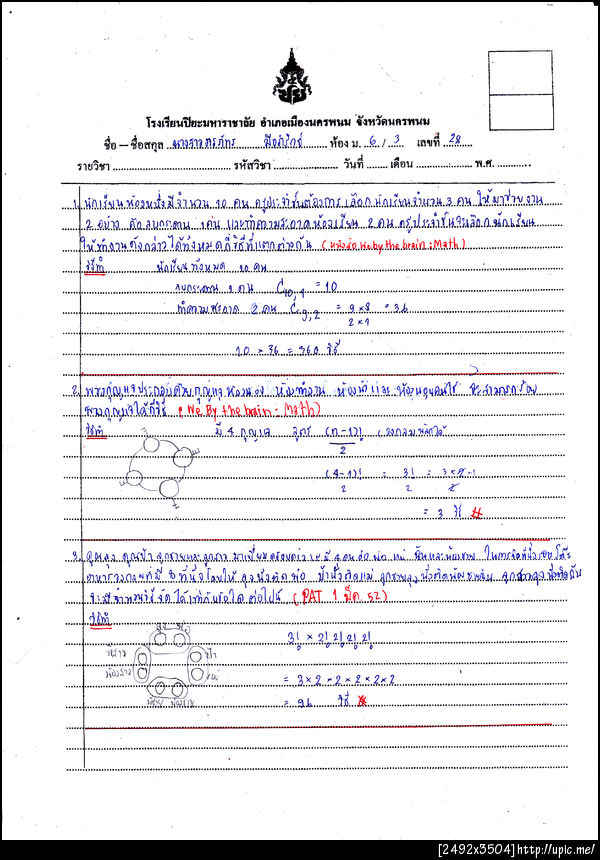 โรงเรียนปิยะมหาราชาลัย อำเภอเมืองนครพนม จังหวัดนครพนม
ชื่อ – ชื่อสกุล ห้อง ม. 6 / 3 เลขที่ 28
รายวิชา รหัสวิชา วันที่ เดือน พ.ศ.
1. นักเรียนห้องหนึ่งมีจำนวน 10 คน ครูประจำชั้นต้องการเลือกนักเรียนจำนวน 3 คน ให้มาช่วยงาน
2 อย่าง คือ ลบกระดาน 1 คน และทำความสะอาดห้องเรียน 2 คน ครูประจำชั้นจะเลือกนักเรียน
ให้ทำงานดังกล่าวได้ทั้งหมดกี่วิธีที่แตกต่างกัน (หนังสือ We by the brain : Math)
วิธีทำ นักเรียนทั้งหมด 10 คน
ลบกระดาน 1 คน C10,1 = 10
ทำความสะอาด 2 คน C9,2 = 9 × 8 = 36
2 × 1
10 × 36 = 360 วิธี
2. พวงกุญแจประกอบด้วยกุญแจ ห้องทำงาน ห้องน้ำ และ จะสามารถร้อย
พวงกุญแจได้กี่วิธี (We By the brain : Math)
วิธีทำ มี 4 กุญแจ สูตร (n-1)!
2
(4-1)! = 3! = 3×2×1
2 2 2
= 3 วิธี #
3. คุณลุง คุณป้า ลูกชายและลูกสาว มาเยี่ยมครอบครัว ซึ่งมี 4 คน คือ พ่อ แม่ ในการจัดที่นั่งรอบโต๊ะ
อาหารวงกลมที่มี 8 ที่นั่ง โดยให้ ลุงนั่งติดพ่อ ป้านั่งติดแม่ ลูกชายลุงนั่งติด ลูกสาวลุงนั่งติดกับ
จะมีจำนวนวิธีจัดได้เท่ากับข้อใดต่อไปนี้ (PAT 1 มีค. 52)
วิธีทำ ลุง พ่อ 3! × 2! 2! 2! 2!
ป้า
= 3 × 2 × 2 × 2 × 2 × 2
แม่
= 96 วิธี #
[2492x3504]http://upic.me/